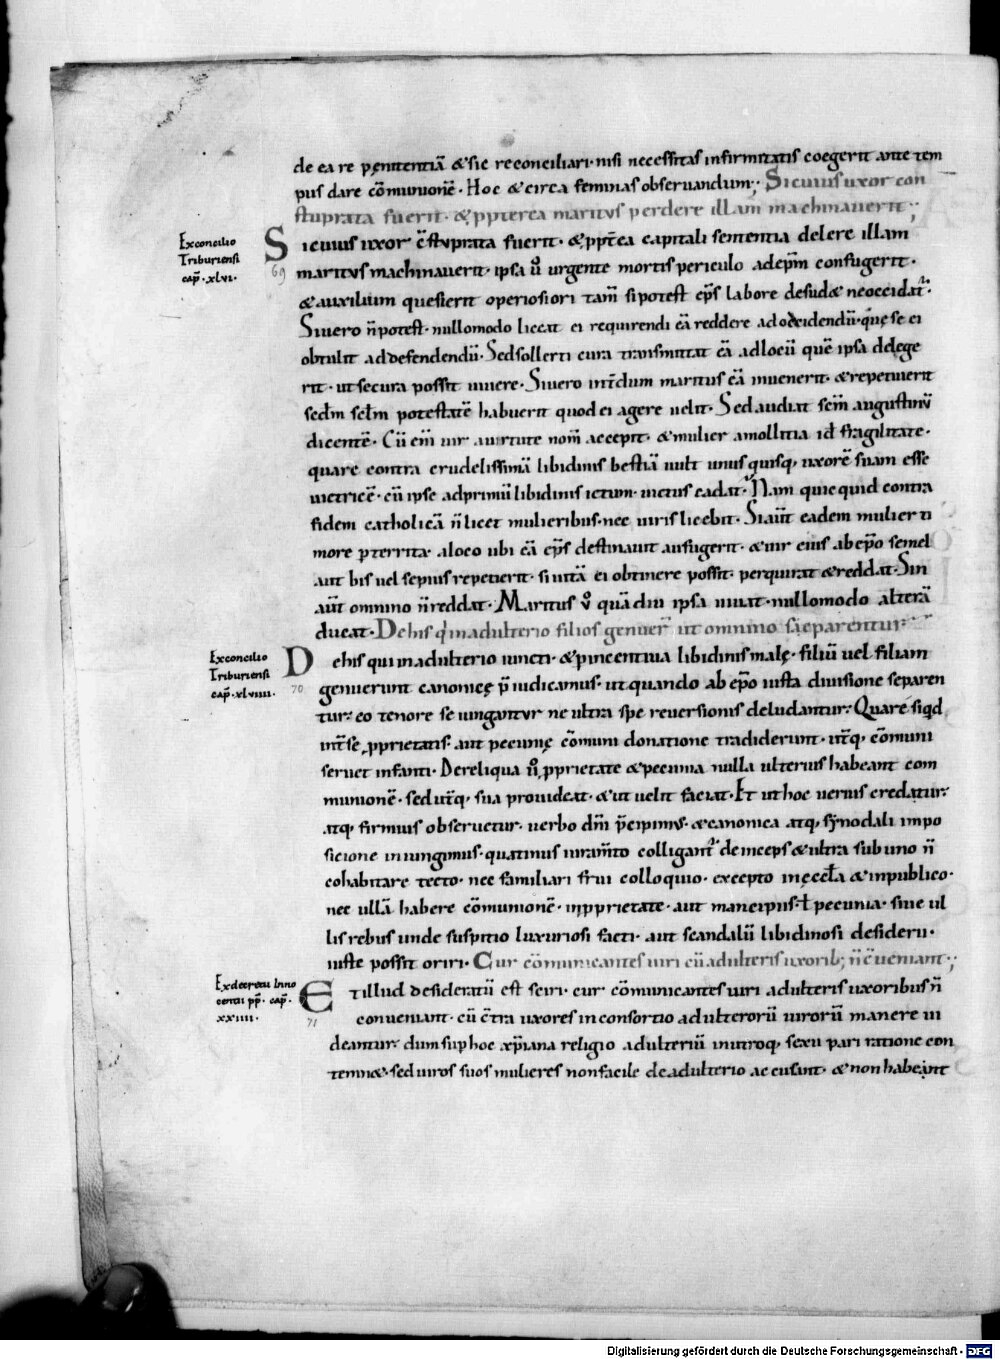 de ea re pęnitentiā & sic reconciliari· nisi necessitas infirmitatis coegerit ante tem
pus dare cōmunionē· Hoc & circa feminas obseruandum; Si cuius uxor con
stuprata fuerit· & ppterea maritus perdere illam machinauerit;
Ex concilio
Triburiensi
cap̄ · xlvi·
69
Si cuius uxor c̄stuprata fuerit· & ppt̄ea capitali sententia delere illam
maritus machinauerit· ipsa u̅ urgente mortis periculo ad ep̄m confugerit·
& auxilium quesierit operiosiori tam̄ si potest ep̄s labore desud& ne occidat̄·
Si uero n̄ potest· nullo modo liceat ei requirendi eā reddere ad occidendū· quę se ei
obtulit ad defendendū· Sed sollerti cura transmittat eā ad locū quē ipsa delege
rit· ut secura possit uiuere· Si uero int̄dum maritus eā inuenerit· & repetiuerit
sedm̄ sctm̄ potestatē habuerit quod ei agere uelit· Sed audiat sem̄ augustinū
dicentē· Cū em̄ uir a uirtute nom̄ accepit· & mulier a mollitia id̄ fragilitate·
quare contra crudelissimā libidinis bestiā uult unus quisq, uxorē suam esse
uictricē· cū ipse ad primū libidinis ictum· uictus cadat· Nam quicquid contra
fidem catholicā n̄ licet mulieribus· nec uiris licebit· Si aut̄ eadem mulier ti
more perterrita· a loco ubi eā ep̄s destinauit aufugerit· & uir eius ab ep̄o semel
aut bis uel sepius repetierit· si uitā ei obtinere possit· perquirat & reddat· Sin
aut̄ omnino n̄ reddat· Maritus u̅ quādiu ipsa uiuat· nullo modo alterā
ducat· De his q̇ in adulterio filios genuer̄ ut omnino separentur
Ex concilio
Triburiensi
cap̄ · xlviiii·
70
De his qui in adulterio iuncti· & p incentiua libidinis malę· filiū uel filiam
genuerunt canonicę p̄iudicamus· ut quando ab ep̄o iusta diuisione separen
tur· eo tenore se iungantur ne ultra spe reuersionis deludantur· Quare siqd
int̄ se pprietatis· aut pecunię cōmuni donatione tradiderunt· ut̄q, cōmuni
seruet infanti· De reliqua u̅ pprietate & pecunia nulla ulterius habeant com
munionē· sed ut̄q, sua prouideat· & ut uelit faciat· Et ut hoc uerius credatur·
atq, firmius obseruetur· uerbo dn̄i p̄cipimus· & canonica atq, synodali impo
sicione iniungimus· quatinus iuram̄to colligant̄ deinceps & ultra sub uno n̄
cohabitare tecto· nec familiari frui colloquio· excepto in ęccl̄a & in publico·
nec ullā habere cōmunionē· in pprietate· aut mancipiis· ł pecunia· siue ul
lis rebus unde suspitio luxuriosi facti· aut scandalū libidinosi desiderii·
iuste possit oriri· Cur cōmunicantes uiri cū adulteris uxorib; n̄ c̄ueniant;
Ex decretis Inno
centii pp̄· cap̄·
xxiiii·
71
Et illud desideratū est sciri· cur cōmunicantes uiri adulteris uxoribus n̄
conueniant· cū c̄tra uxores in consortio adulterorū uirorū manere ui
deantur· dum sup hoc xp̄iana religio adulteriū in utroq, sexu pari ratione con
temn&· sed uiros suos mulieres non facile de adulterio accusant· & non habeant
Digitalisierung gefördert durch die Deutsche Forschungsgemeinschaft - DFG